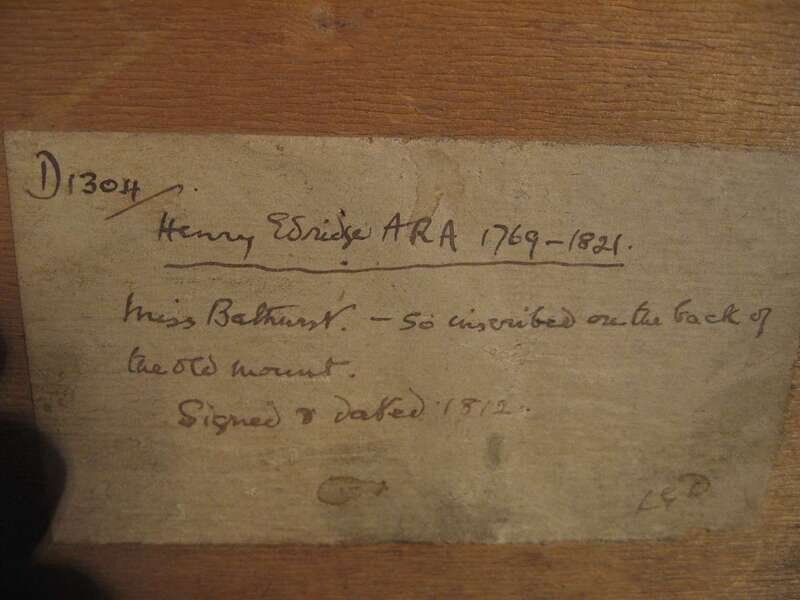 D1304
Henry Edridge ARA 1769-1821.
Miss Bathurst. - So inscribed on the back of
the old mount.
Signed & dated 1812.